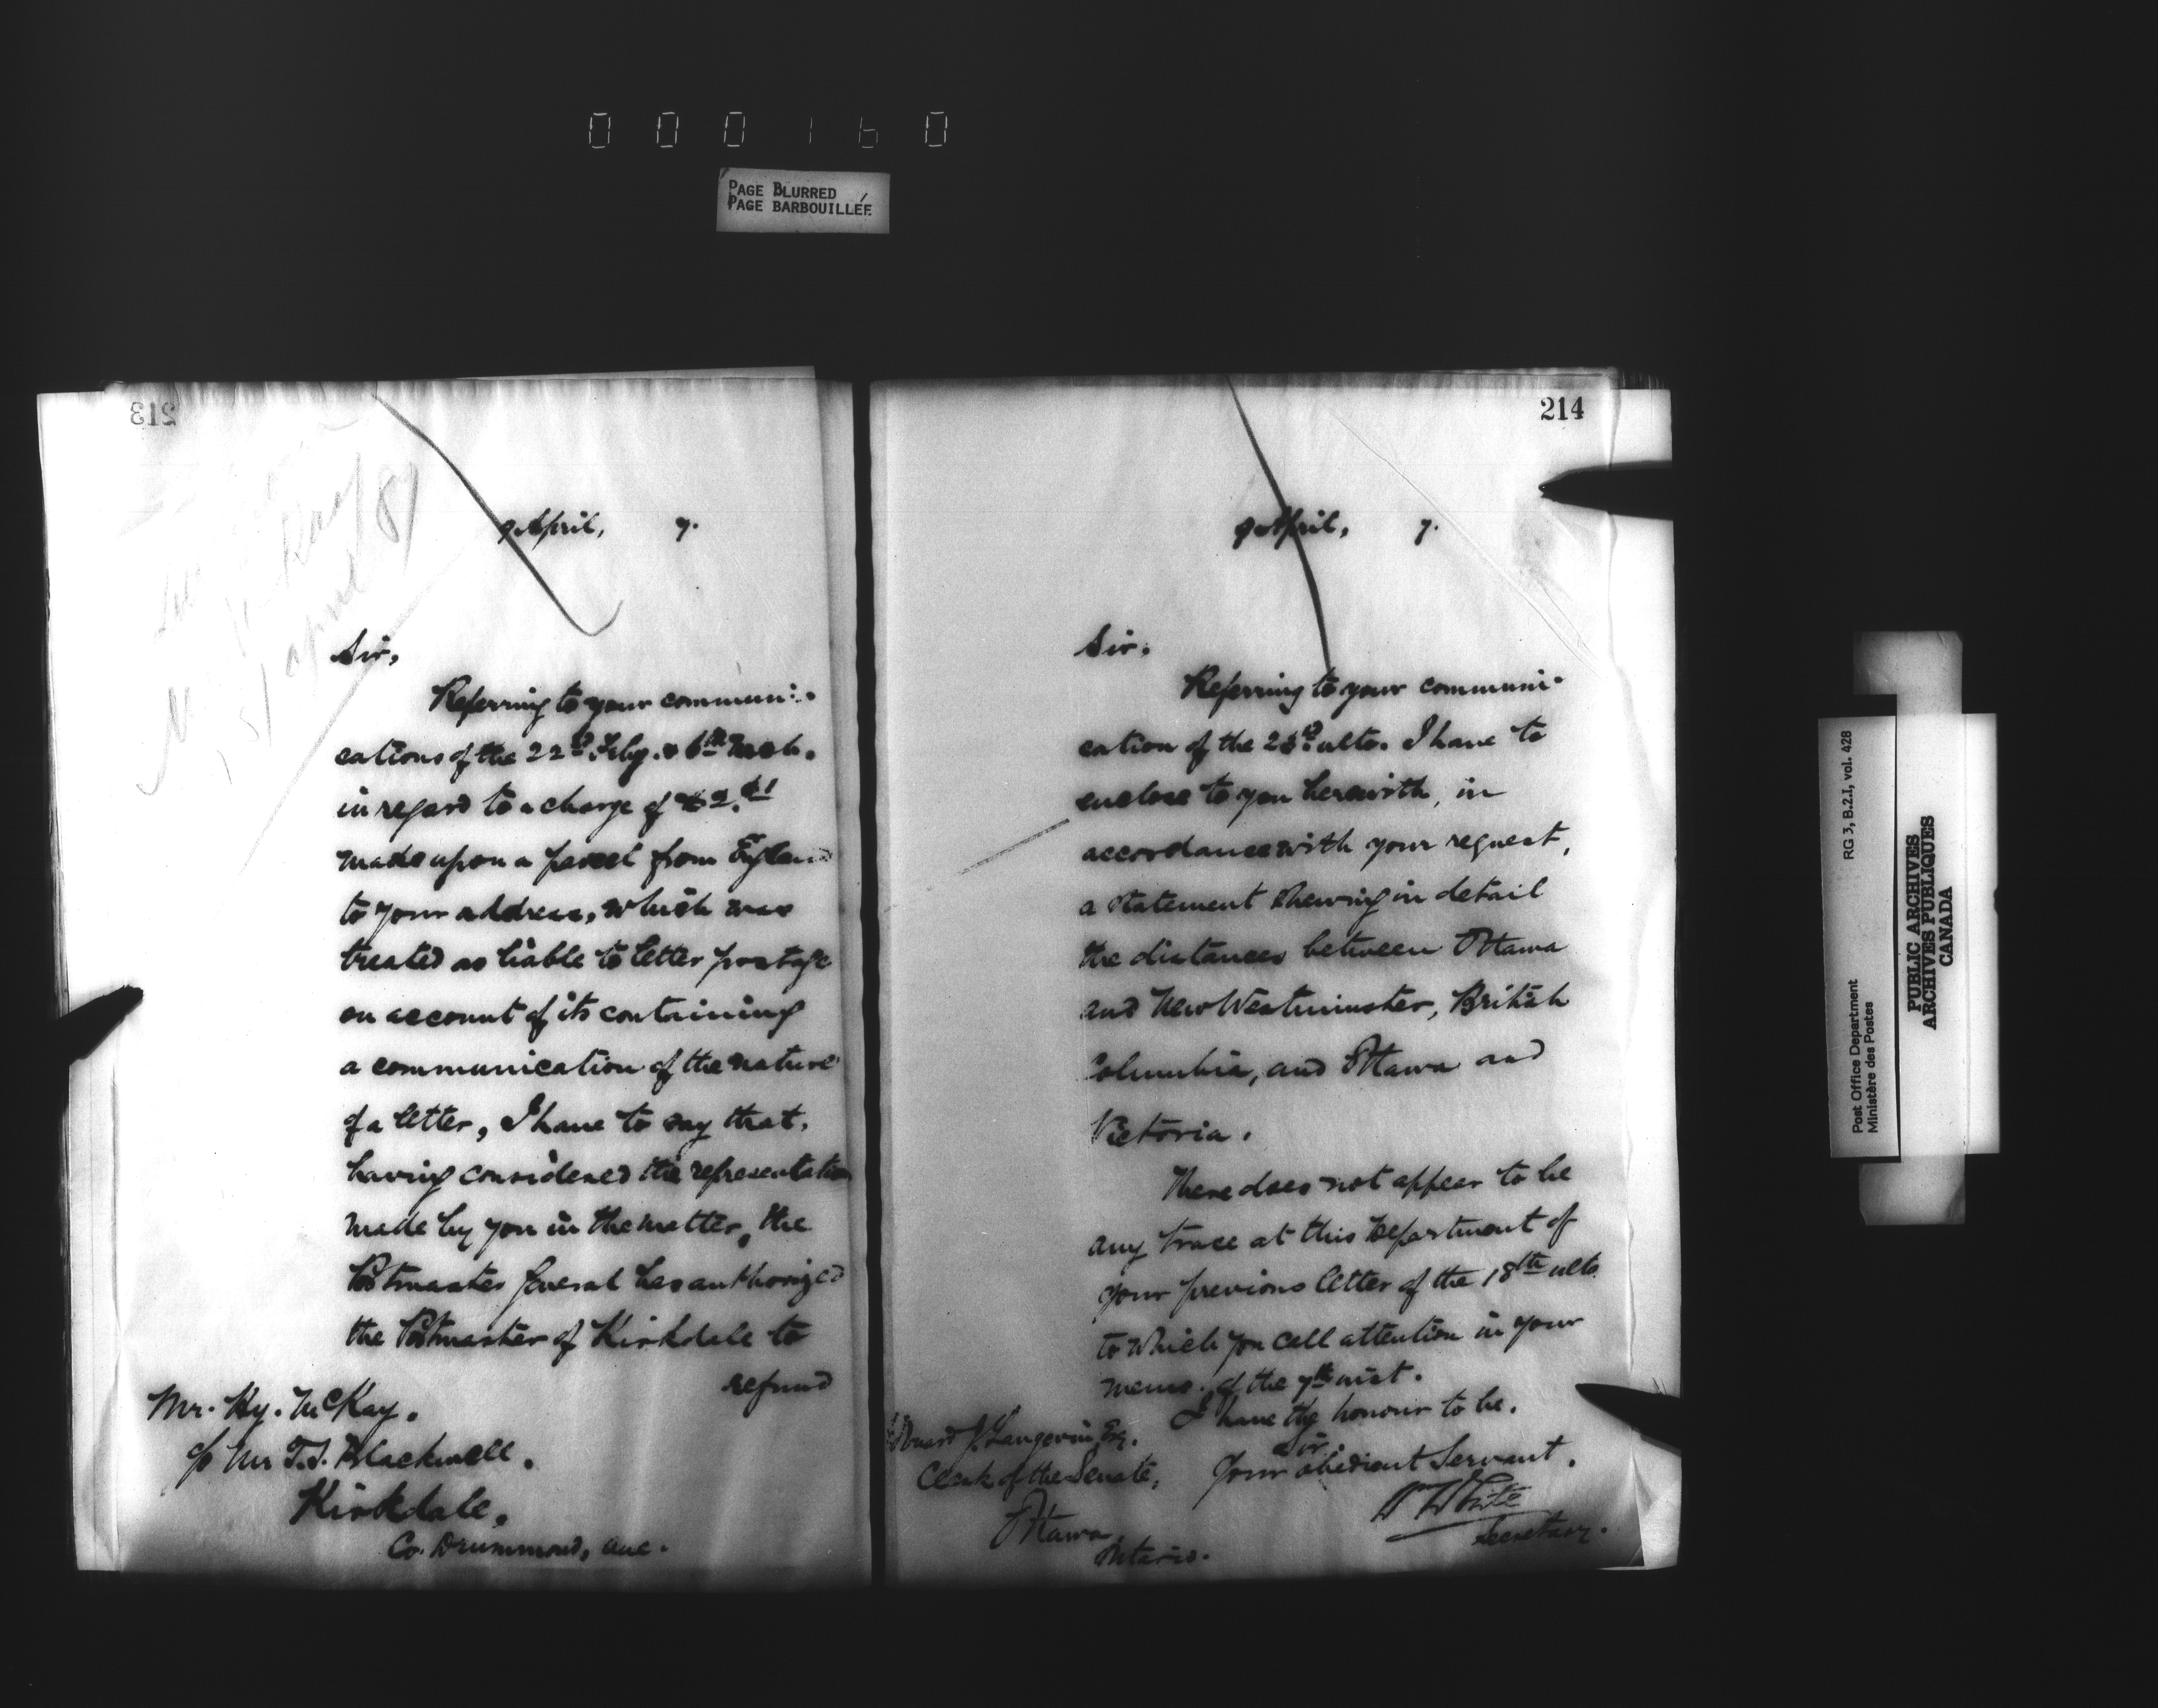 000160
PAGE BLURRED
PAGE BARBOUILLÉE
213
April 87
9 April, 7.
Sir,
Referring to your communi-
cations of the 22d. Feby. & 6th Mch.
in regard to a charge of $2.
made upon a parcel from England
to your address, which was
treated as liable to letter postage
on account of its containing
a communication of the nature
of a letter, I have to say that,
having considered the representation
made by you in the matter, the
Postmaster General has authorized
the Postmaster of Kirkdale to
refund
Mr. Hy. McKay.
c/o Mr T.J. Blackwell.
Kirkdale.
Co. Drummond, Que.
214
9 April, 7.
Sir,
Referring to your communi-
cation of the ulto. I have to
enclose to you herewith, in
accordance with your request,
a statement shewing in detail
the distances between Ottawa
and New Westminster, British
Columbia, and Ottawa and
Victoria.
There does not appear to be
any trace at this Department of
your previous letter of the 18th ulto.
to which you call attention in your
memo. of the 7th inst.
I have the honour to be,
Sir,
Your obedient Servant.
W White
Secretary.
Edouard J. Langevin Esq.
Clerk of the Senate,
Ottawa
Ontario.
RG 3, B.2.I, vol. 428
Post Office Department
Ministère des Postes
PUBLIC ARCHIVES
ARCHIVES PUBLIQUES
CANADA